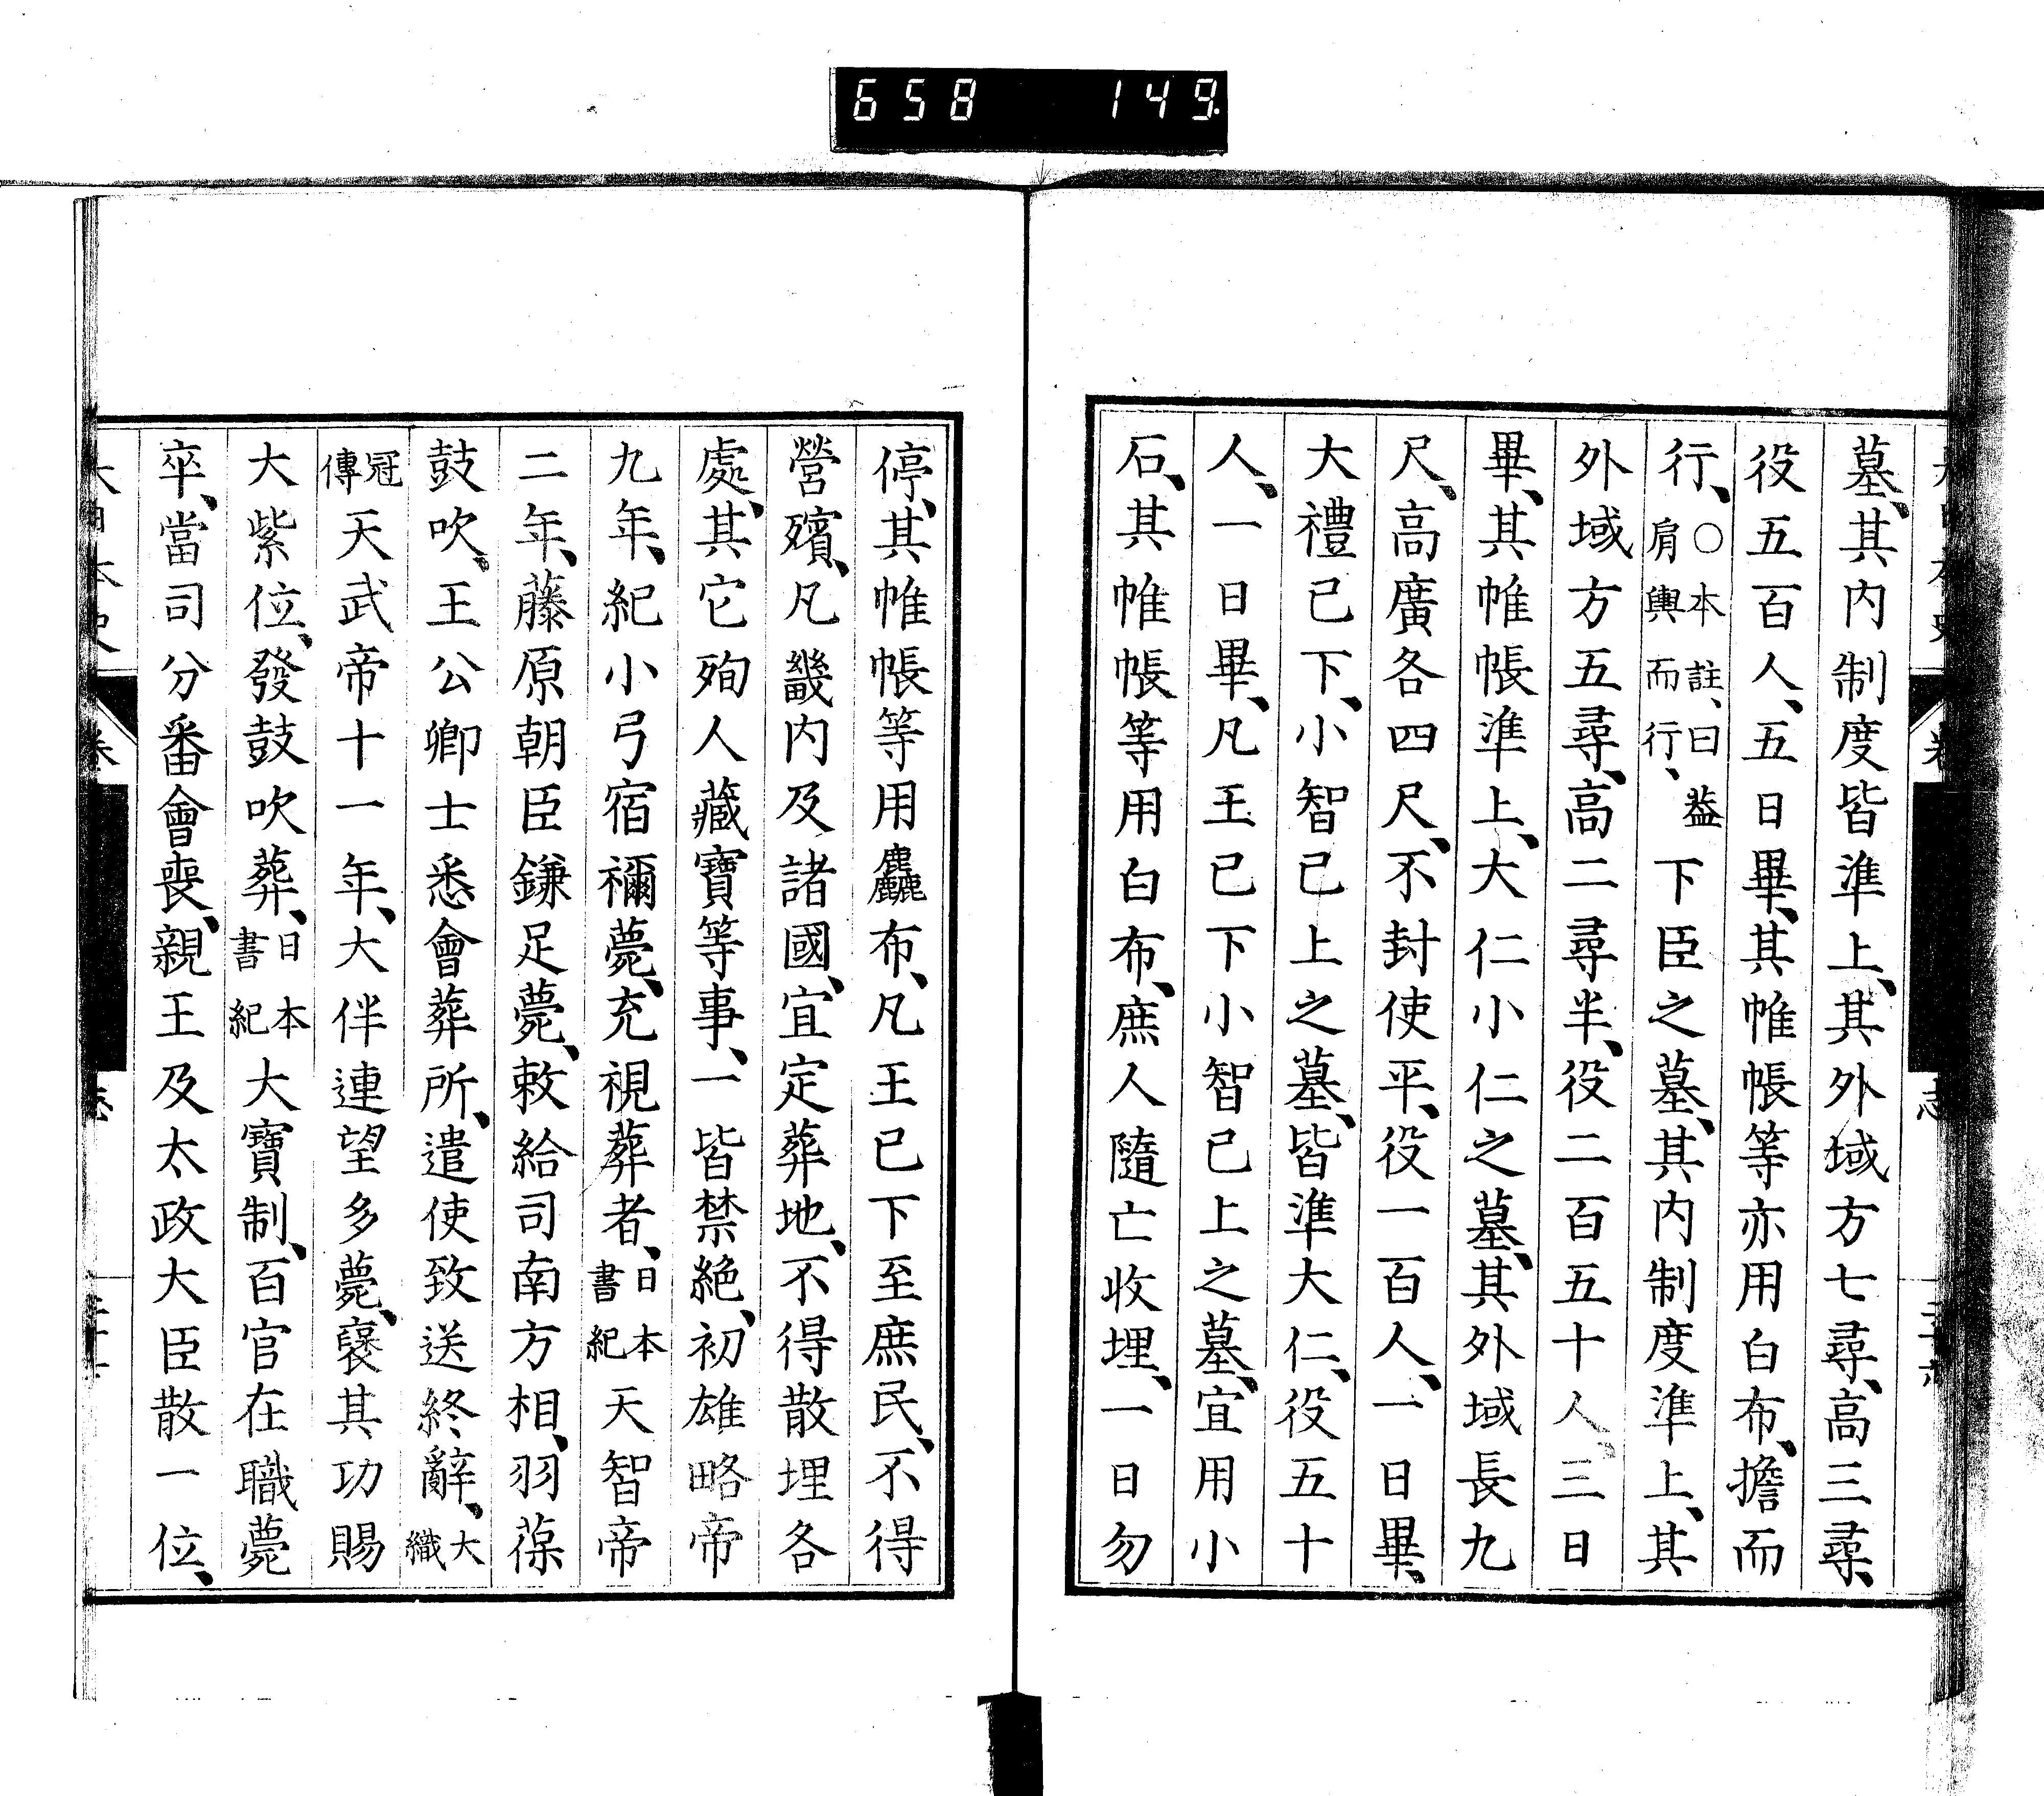 658 149
墓、其内制度皆準上、其外域方七尋、高三尋、
役五百人、五日畢、其帷帳等亦用白布、擔而
行、○本註、曰葢肩輿而行、下臣之墓、其内制度準上、其
外域方五尋、高二尋半、役二百五十人三日
畢、其帷帳準上、大仁小仁之墓、其外域長九
尺、高廣各四尺、不封使平、役一百人、一日畢、
大禮已下、小智已上之墓、皆準大仁、役五十
人、一日畢、凡王已下小智已上之墓、宜用小
石、其帷帳等用白布、庶人隨亡收埋、一日勿
停、其帷帳等用麤布、凡王已下至庶民、不得
營殯、凡畿内及諸國、宜定葬地、不得散埋各
處、其它殉人藏寶等事、一皆禁絕、初雄略帝
九年、紀小弓宿禰薨、充視葬者、日本書紀天智帝
二年、藤原朝臣鎌足薨、敕給司南方相、羽葆
鼓吹、王公卿士悉會葬所、遣使致送終辭、大織
冠傳天武帝十一年、大伴連望多薨、襃其功賜
大紫位、發鼓吹葬、日本書紀大寶制、百官在職薨
卒、當司分番會喪、親王及太政大臣散一位、